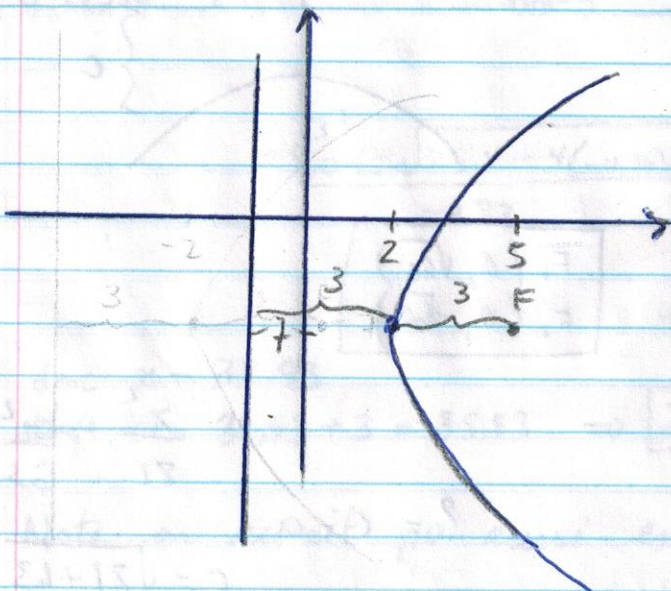 2 5
3 3 F
-7